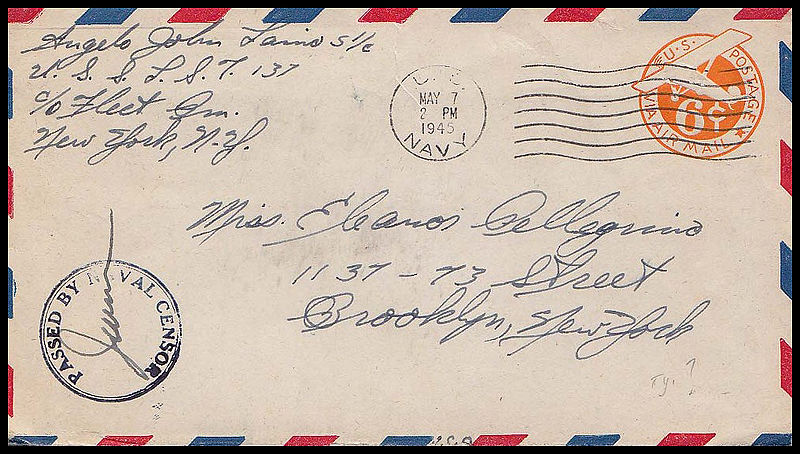 Angelo John Laino S1/c
U. S. S. L. S. T. 137
c/o Fleet Pm.
New York, N.Y.
MAY 7
2 PM
1945
NAVY
U.S. POSTAGE
6¢
VIA AIR MAIL
Miss. Eleanor Pellegrino
1137 - 73 Street
Brooklyn, New York
PASSED BY NAVAL CENSOR